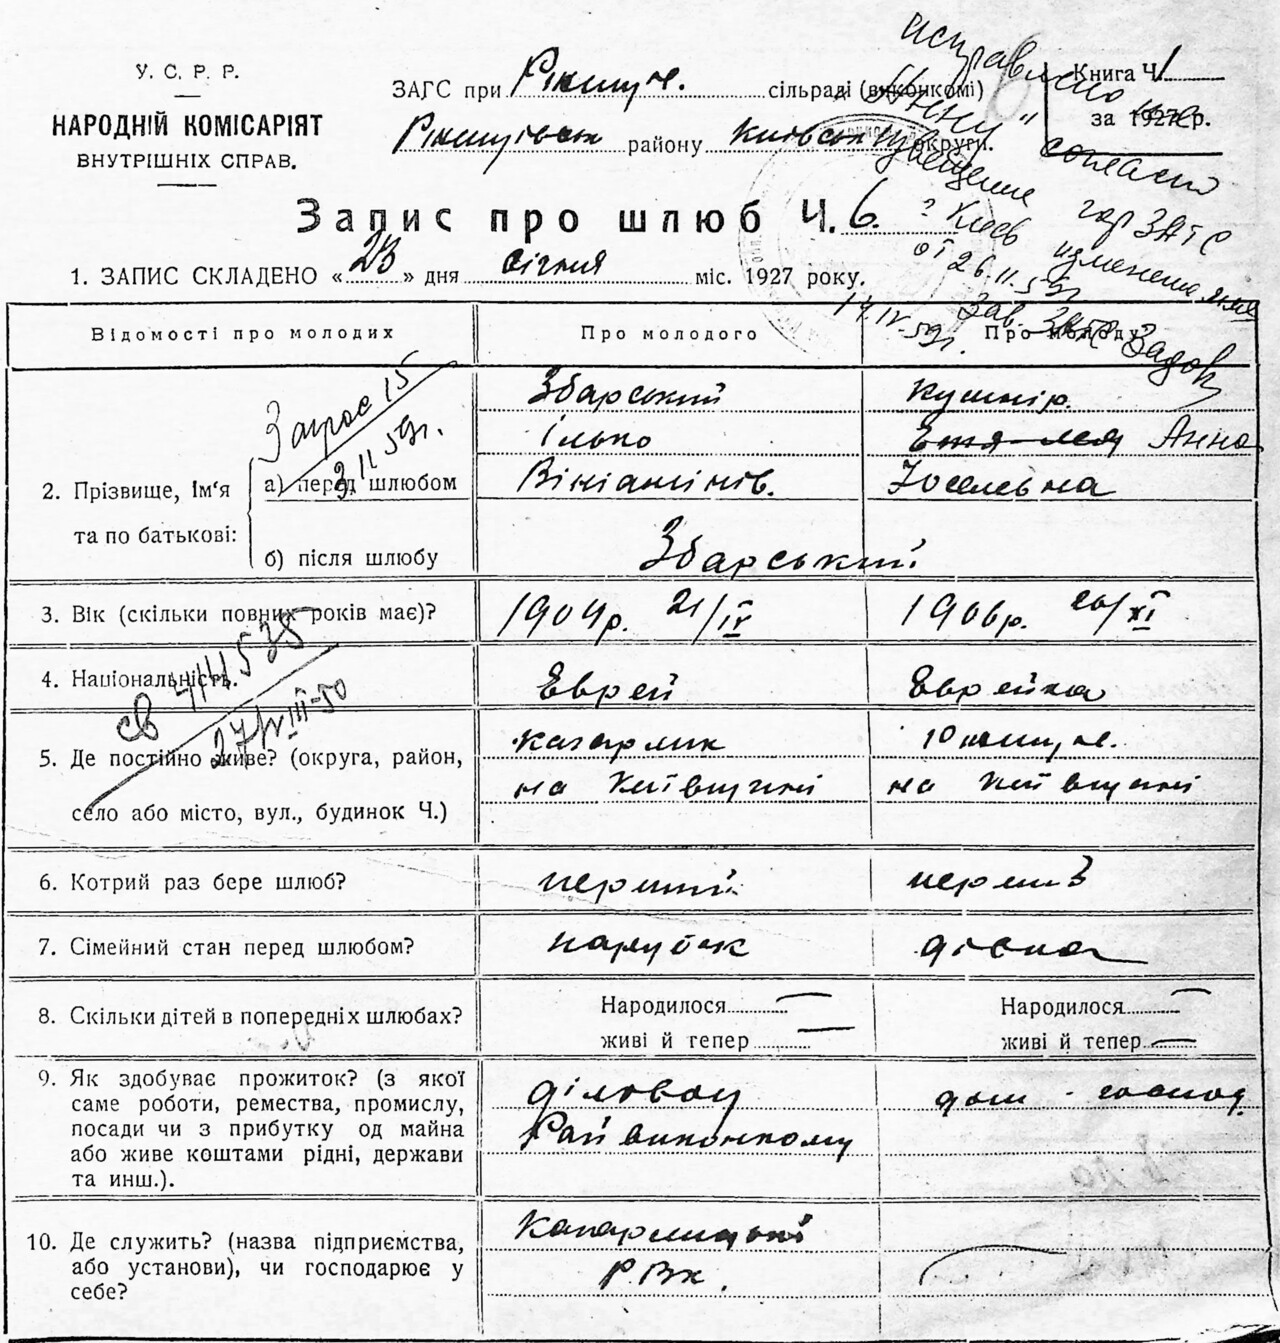 У. С. Р. Р.
НАРОДНІЙ КОМІСАРІЯТ
ВНУТРІШНІХ СПРАВ.
ЗАГС при сільраді (виконкомі)
району Київськ округи.
Книга Ч. 1
за 1927 р.
исправлено на
"Анну" согласно
извещения горЗАГС
г Киев изменена имя
от 26.II.59г
Зав. ЗАГС
14.IV-59г.
Запис про шлюб Ч. 6.
1. ЗАПИС СКЛАДЕНО «28» дня січня міс. 1927 року.
Відомості про молодих
Про молодого
Про молоду
Запрос 15
3 II 59г.
2. Прізвище, Ім'я
та по батькові:
а) перед шлюбом
Збарський
Ілько
Вініамінів.
Кушнір.
Анна
Йоселевна
б) після шлюбу
Збарський
3. Вік (скільки повних років має)?
1904р. 21/IV
1906р. 20/XI
4. Національність.
Еврей
Еврейка
5. Де постійно живе? (округа, район,
село або місто, вул., будинок Ч.)
Кагарлик
на Київщині
на Київщині
6. Котрий раз бере шлюб?
перший
перший
7. Сімейний стан перед шлюбом?
парубок
дівка
8. Скільки дітей в попередніх шлюбах?
Народилося —
живі й тепер —
Народилося —
живі й тепер —
9. Як здобуває прожиток? (з якої
саме роботи, ремества, промислу,
посади чи з прибутку од майна
або живе коштами рідні, держави
та инш.).
діловод
Райвиконкому
дом. господ.
10. Де служить? (назва підприємства,
або установи), чи господарює у
себе?
Кагарлицький
РВК.